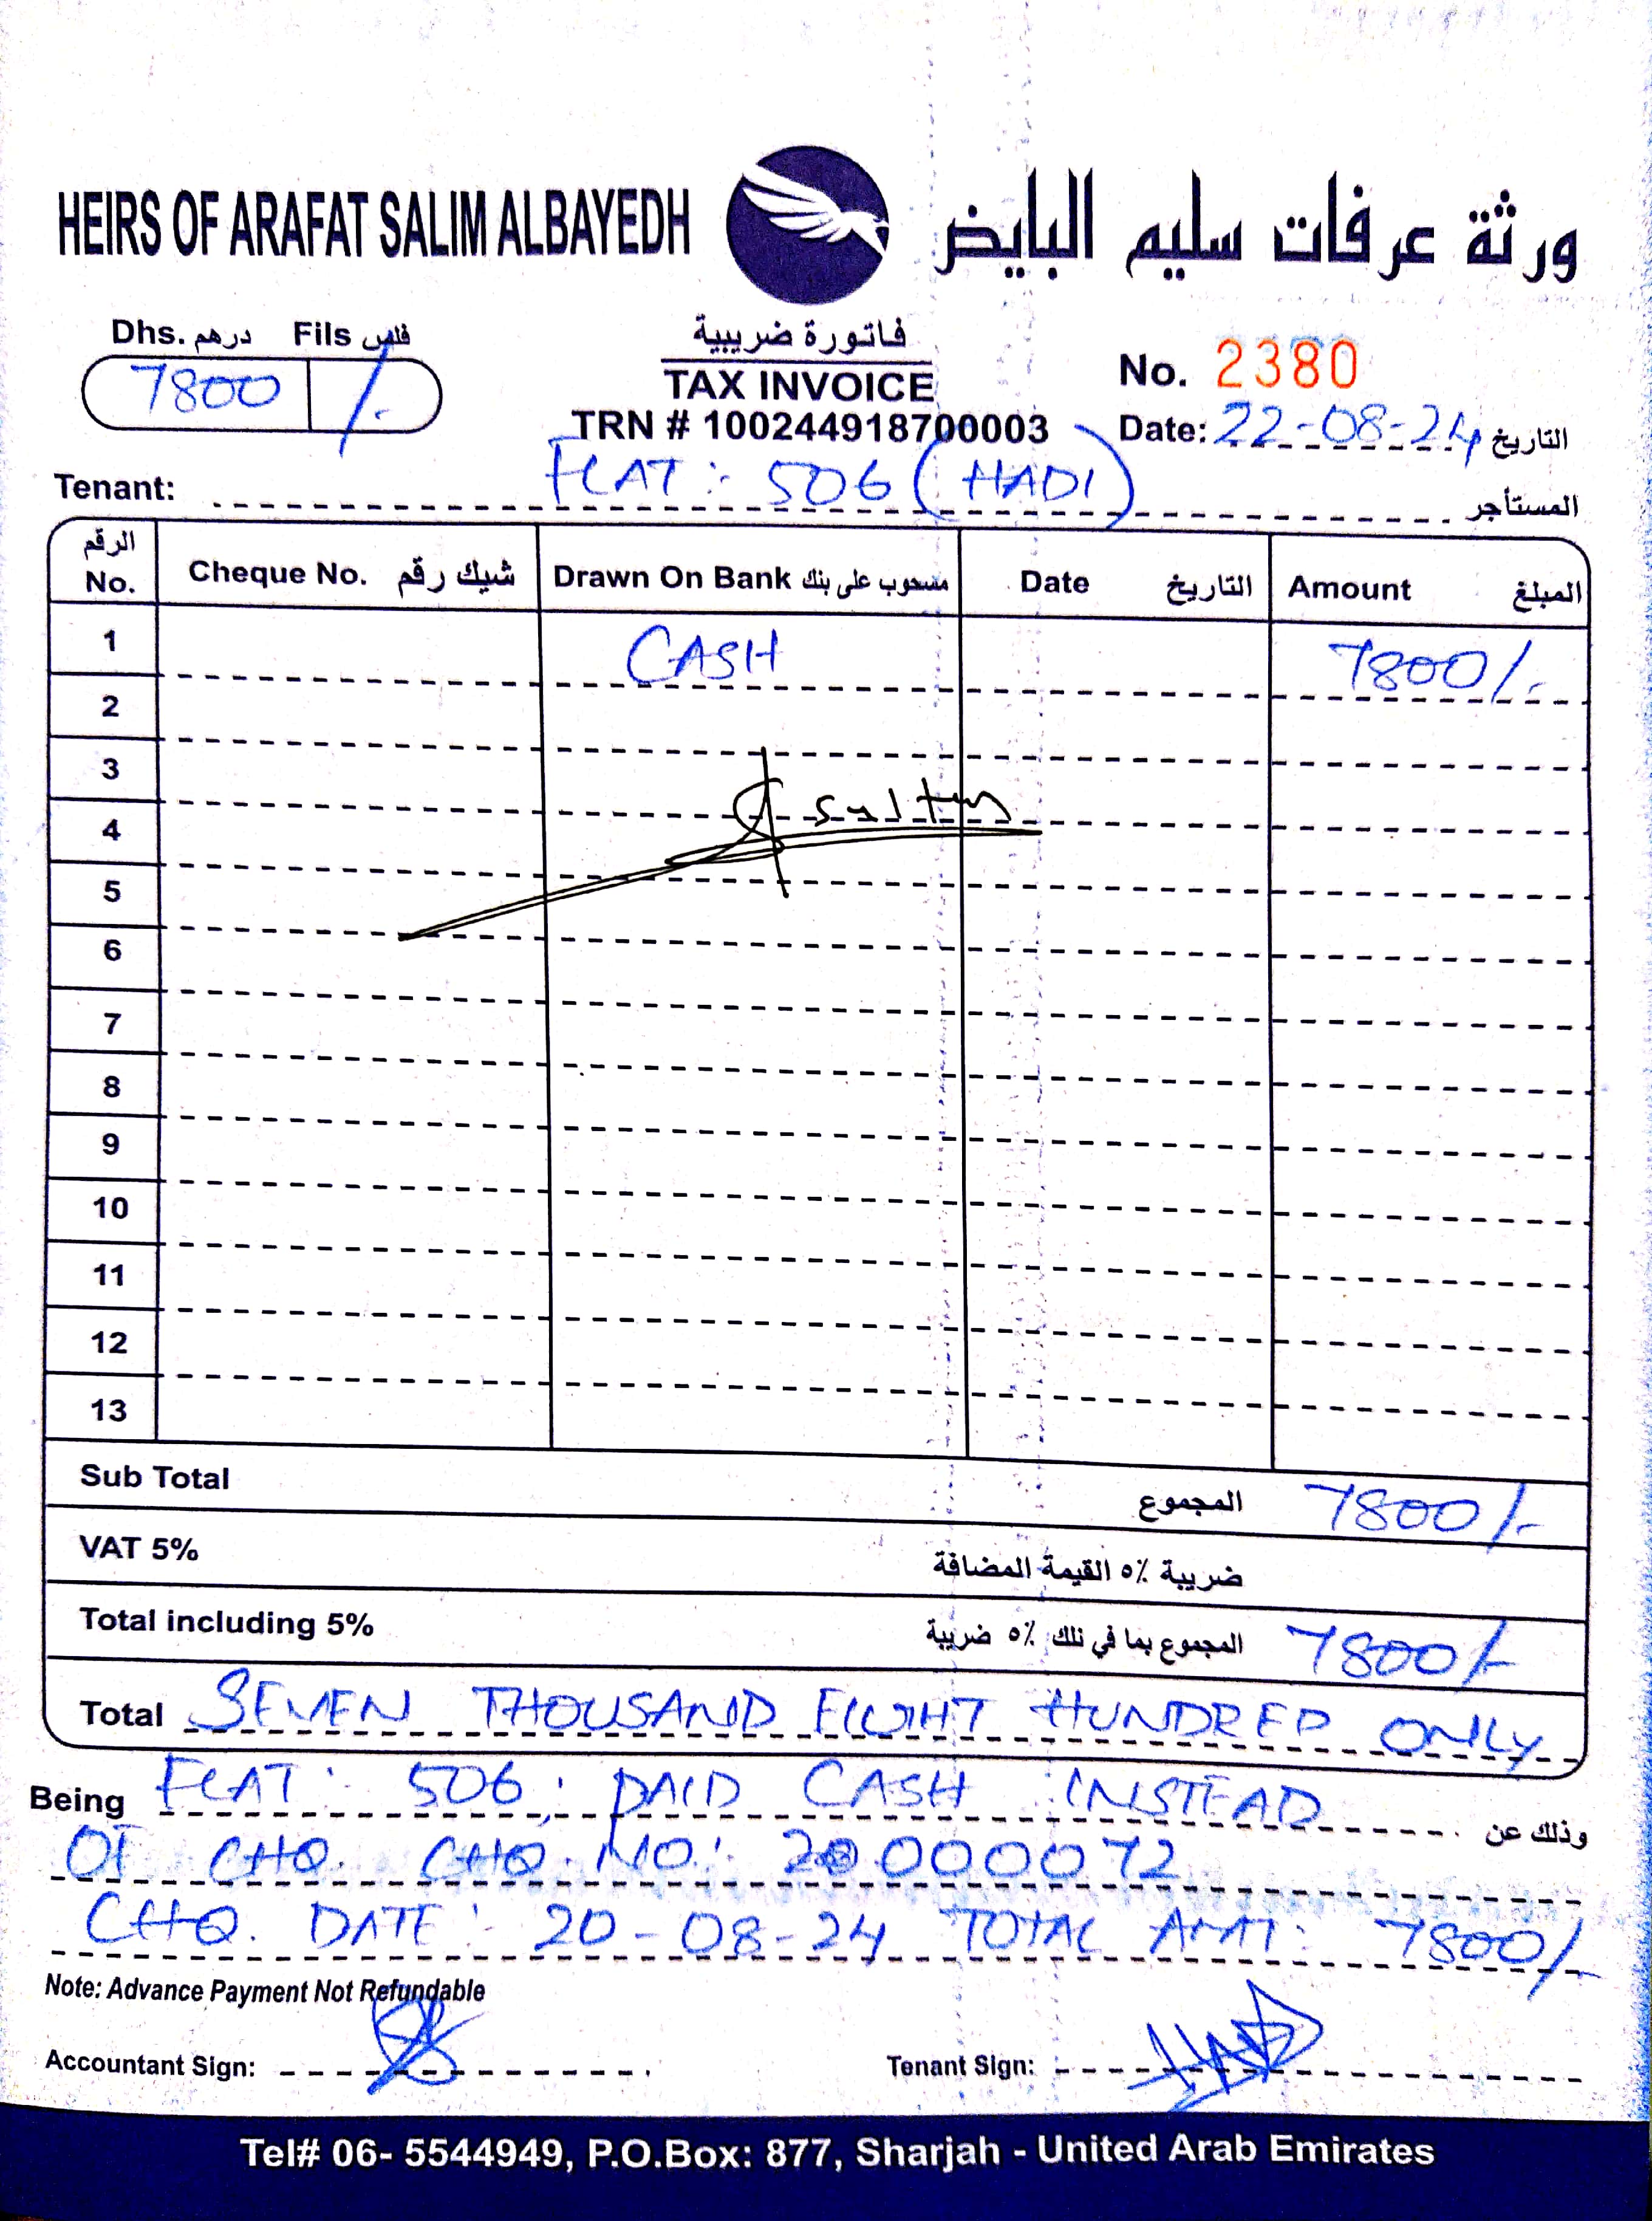 HEIRS OF ARAFAT SALIM ALBAYEDH ورثة عرفات سليم البايض
Dhs. درهم Fils فلس
7800 /-
فاتورة ضريبية
TAX INVOICE
TRN # 100244918700003
No. 2380
Date: 22-08-24 التاريخ
Tenant: FLAT : 506 (HADI) المستأجر
الرقم No. Cheque No. شيك رقم Drawn On Bank مسحوب على بنك Date التاريخ Amount المبلغ
1 CASH 7800/-
2
3
4 Sultan
5
6
7
8
9
10
11
12
13
Sub Total المجموع 7800/-
VAT 5% ضريبة ٥٪ القيمة المضافة
Total including 5% المجموع بما في ذلك ٥٪ ضريبة 7800/-
Total SEVEN THOUSAND EIGHT HUNDRED ONLY
Being FLAT: 506, PAID CASH INSTEAD وذلك عن
OF CHQ. CHQ. NO: 20000072
CHQ. DATE : 20-08-24 TOTAL AMT: 7800/-
Note: Advance Payment Not Refundable
Accountant Sign: Tenant Sign:
Tel# 06- 5544949, P.O.Box: 877, Sharjah - United Arab Emirates